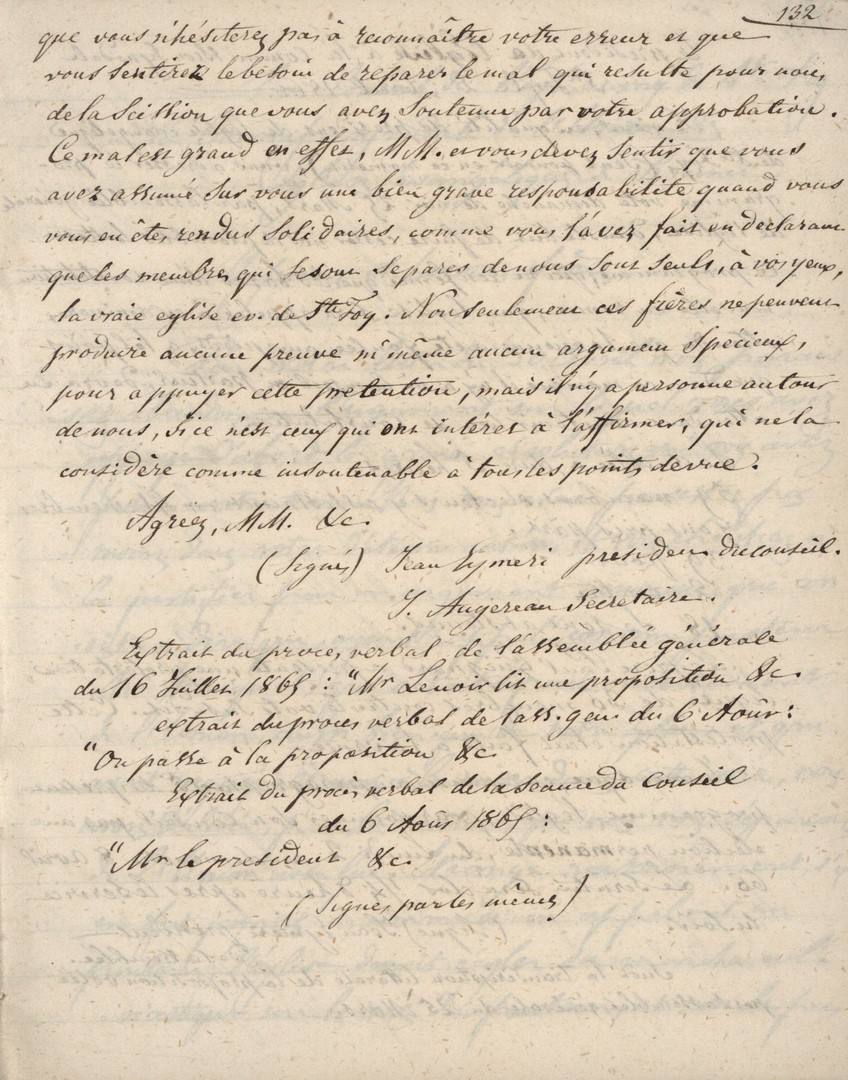 132
que vous n'hésiterez pas à reconnaître votre erreur et que
vous sentirez le besoin de reparer le mal qui resulte pour nous,
de la Scission que vous avez soutenue par votre approbation.
Ce mal est grand en effet, MM. et vous devez sentir que vous
avez assumé sur vous une bien grave responsabilité quand vous
vous en êtes rendus solidaires, comme vous l'avez fait en declarant
que les membres qui se sont separes de nous sont seuls, à vos yeux,
la vraie eglise ev. de Ste Foy. Non seulement ces frères ne peuvent
produire aucune preuve ni même aucun argument spécieux,
pour appuyer cette pretention, mais il n'y a personne autour
de nous, si ce n'est ceux qui ont intéret à l'affirmer, qui ne la
considère comme insoutenable à tous les points de vue.
Agréez, MM. &c.
(Signés) Jean Eymeri president du conseil.
J. Augereau Secretaire.
Extrait du procès verbal de l'assemblée générale
du 16 Juillet 1865 : "Mr Lenoir lit une proposition &c.
extrait du proces verbal de l'ass. gen. du 6 Août :
"On passe à la proposition &c
Extrait du procès verbal de la seance du Conseil
du 6 Août 1865 :
"Mr le president &c.
(Signés par les mêmes)